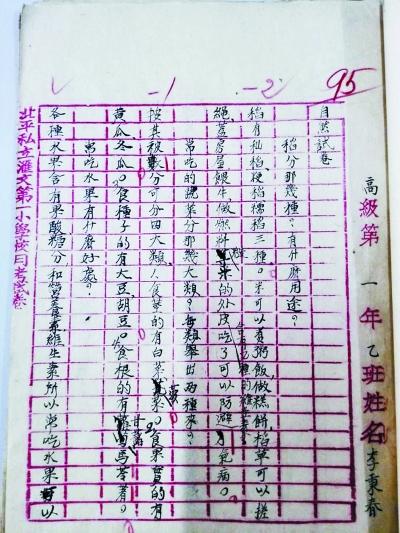 95
-2
-1
高級第一年乙班姓名李東春
自然試卷
稻分那幾種？有什麽用途？
稻有秈稻、粳稻、糯稻三種。米可以煮粥飯，做糕餅，稻草可以搓
繩，蓋房屋，餵牛，做燃料，米的外皮吃了可以防避病。
常吃的蔬菜分那幾大類？每類舉出兩種來？
按其被食分可分四大類：食葉的有白菜菜。食果實的有
黄瓜、冬瓜。食種子的有大豆、胡豆。食根的有蘿蔔馬苓薯。
常吃水果有什麽好處？
各種水果含有果酸糖分和營養素維生素所以常吃水果可以
北平私立滙文第一小學校月考試卷